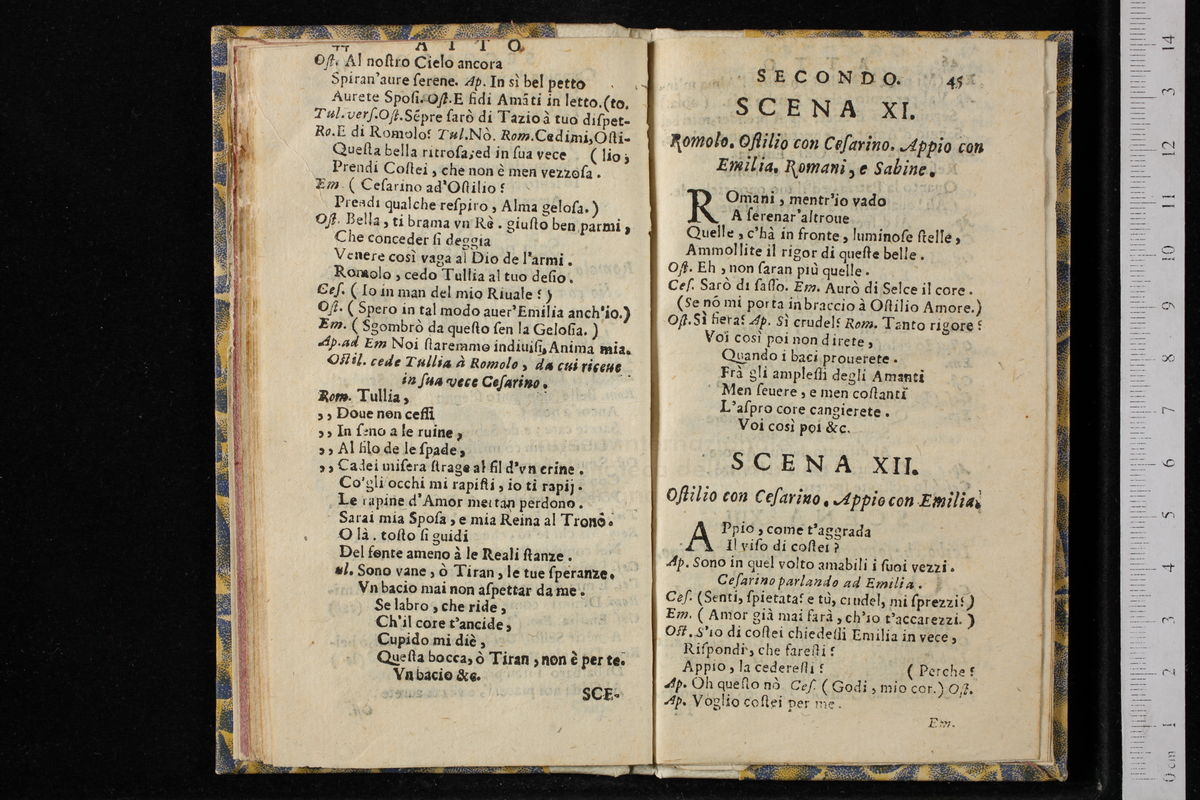 44 ATTO
Oſt. Al noſtro Cielo ancora
Spiran'aure ſerene. Ap. In sì bel petto
Aurete Spoſi. Oſt. E fidi Amãti in letto. (to.
Tul. verſ. Oſt. Sẽpre ſarò di Tazio à tuo diſpet-
Ro. E di Romolo? Tul. Nò. Rom. Cedimi, Oſti-
Queſta bella ritroſa; ed in ſua vece (lio,
Prendi Coſtei, che non è men vezzoſa.
Em. (Ceſarino ad'Oſtilio?
Prendi qualche reſpiro, Alma geloſa.)
Oſt. Bella, ti brama vn Rè. giuſto ben parmi,
Che conceder ſi deggia
Venere così vaga al Dio de l'armi.
Romolo, cedo Tullia al tuo deſio.
Ceſ. (Io in man del mio Riuale?)
Oſt. (Spero in tal modo auer'Emilia anch'io.)
Em. (Sgombrò da queſto ſen la Geloſia.)
Ap. ad Em Noi ſtaremmo indiuiſi, Anima mia.
Oſtil. cede Tullia à Romolo, da cui riceue
in ſua vece Ceſarino.
Rom. Tullia,
,, Doue non ceſſi
,, In ſeno a le ruine,
,, Al filo de le ſpade,
,, Cadei miſera ſtrage al fil d'vn crine.
Co'gli occhi mi rapiſti, io ti rapij.
Le rapine d'Amor mertan perdono.
Sarai mia Spoſa, e mia Reina al Trono.
O là. toſto ſi guidi
Del fonte ameno à le Reali ſtanze.
ul. Sono vane, ò Tiran, le tue ſperanze.
Vn bacio mai non aſpettar da me.
Se labro, che ride,
Ch'il core t'ancide,
Cupido mi diè,
Queſta bocca, ò Tiran, non è per te.
Vn bacio &c.
SCE-
SECONDO. 45
SCENA XI.
Romolo. Oſtilio con Ceſarino. Appio con
Emilia. Romani, e Sabine.
ROmani, mentr'io vado
A ſerenar'altroue
Quelle, c'hà in fronte, luminoſe ſtelle,
Ammollite il rigor di queſte belle.
Oſt. Eh, non ſaran più quelle.
Ceſ. Sarò di ſaſſo. Em. Aurò di Selce il core.
(Se nõ mi porta in braccio à Oſtilio Amore.)
Oſt. Sì fiera? Ap. Sì crudel? Rom. Tanto rigore?
Voi così poi non direte,
Quando i baci prouerete.
Frà gli ampleſſi degli Amanti
Men ſeuere, e men coſtanti
L'aſpro core cangierete.
Voi così poi &c.
SCENA XII.
Oſtilio con Ceſarino. Appio con Emilia.
APpio, come t'aggrada
Il viſo di coſtei?
Ap. Sono in quel volto amabili i ſuoi vezzi.
Ceſarino parlando ad Emilia.
Ceſ. (Senti, ſpietata? e tù, crudel, mi ſprezzi?)
Em. (Amor già mai farà, ch'io t'accarezzi.)
Oſt. S'io di coſtei chiedeſſi Emilia in vece,
Riſpondi, che fareſti?
Appio, la cedereſti? (Perche?
Ap. Oh queſto nò Ceſ. (Godi, mio cor.) Oſt.
Ap. Voglio coſtei per me.
Em.